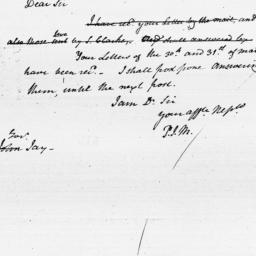 Dear Sir
I have rec'd your letter by the mail, and
also those two by S. Clarkson. And shall answered by
Your Letters of the 30th and 31st of may
have been rec'd. I shall postpone answering
them, until the next post.
I am Dr. Sir
Your affte. Nephw.
P. J. M.
Govr.
John Jay.